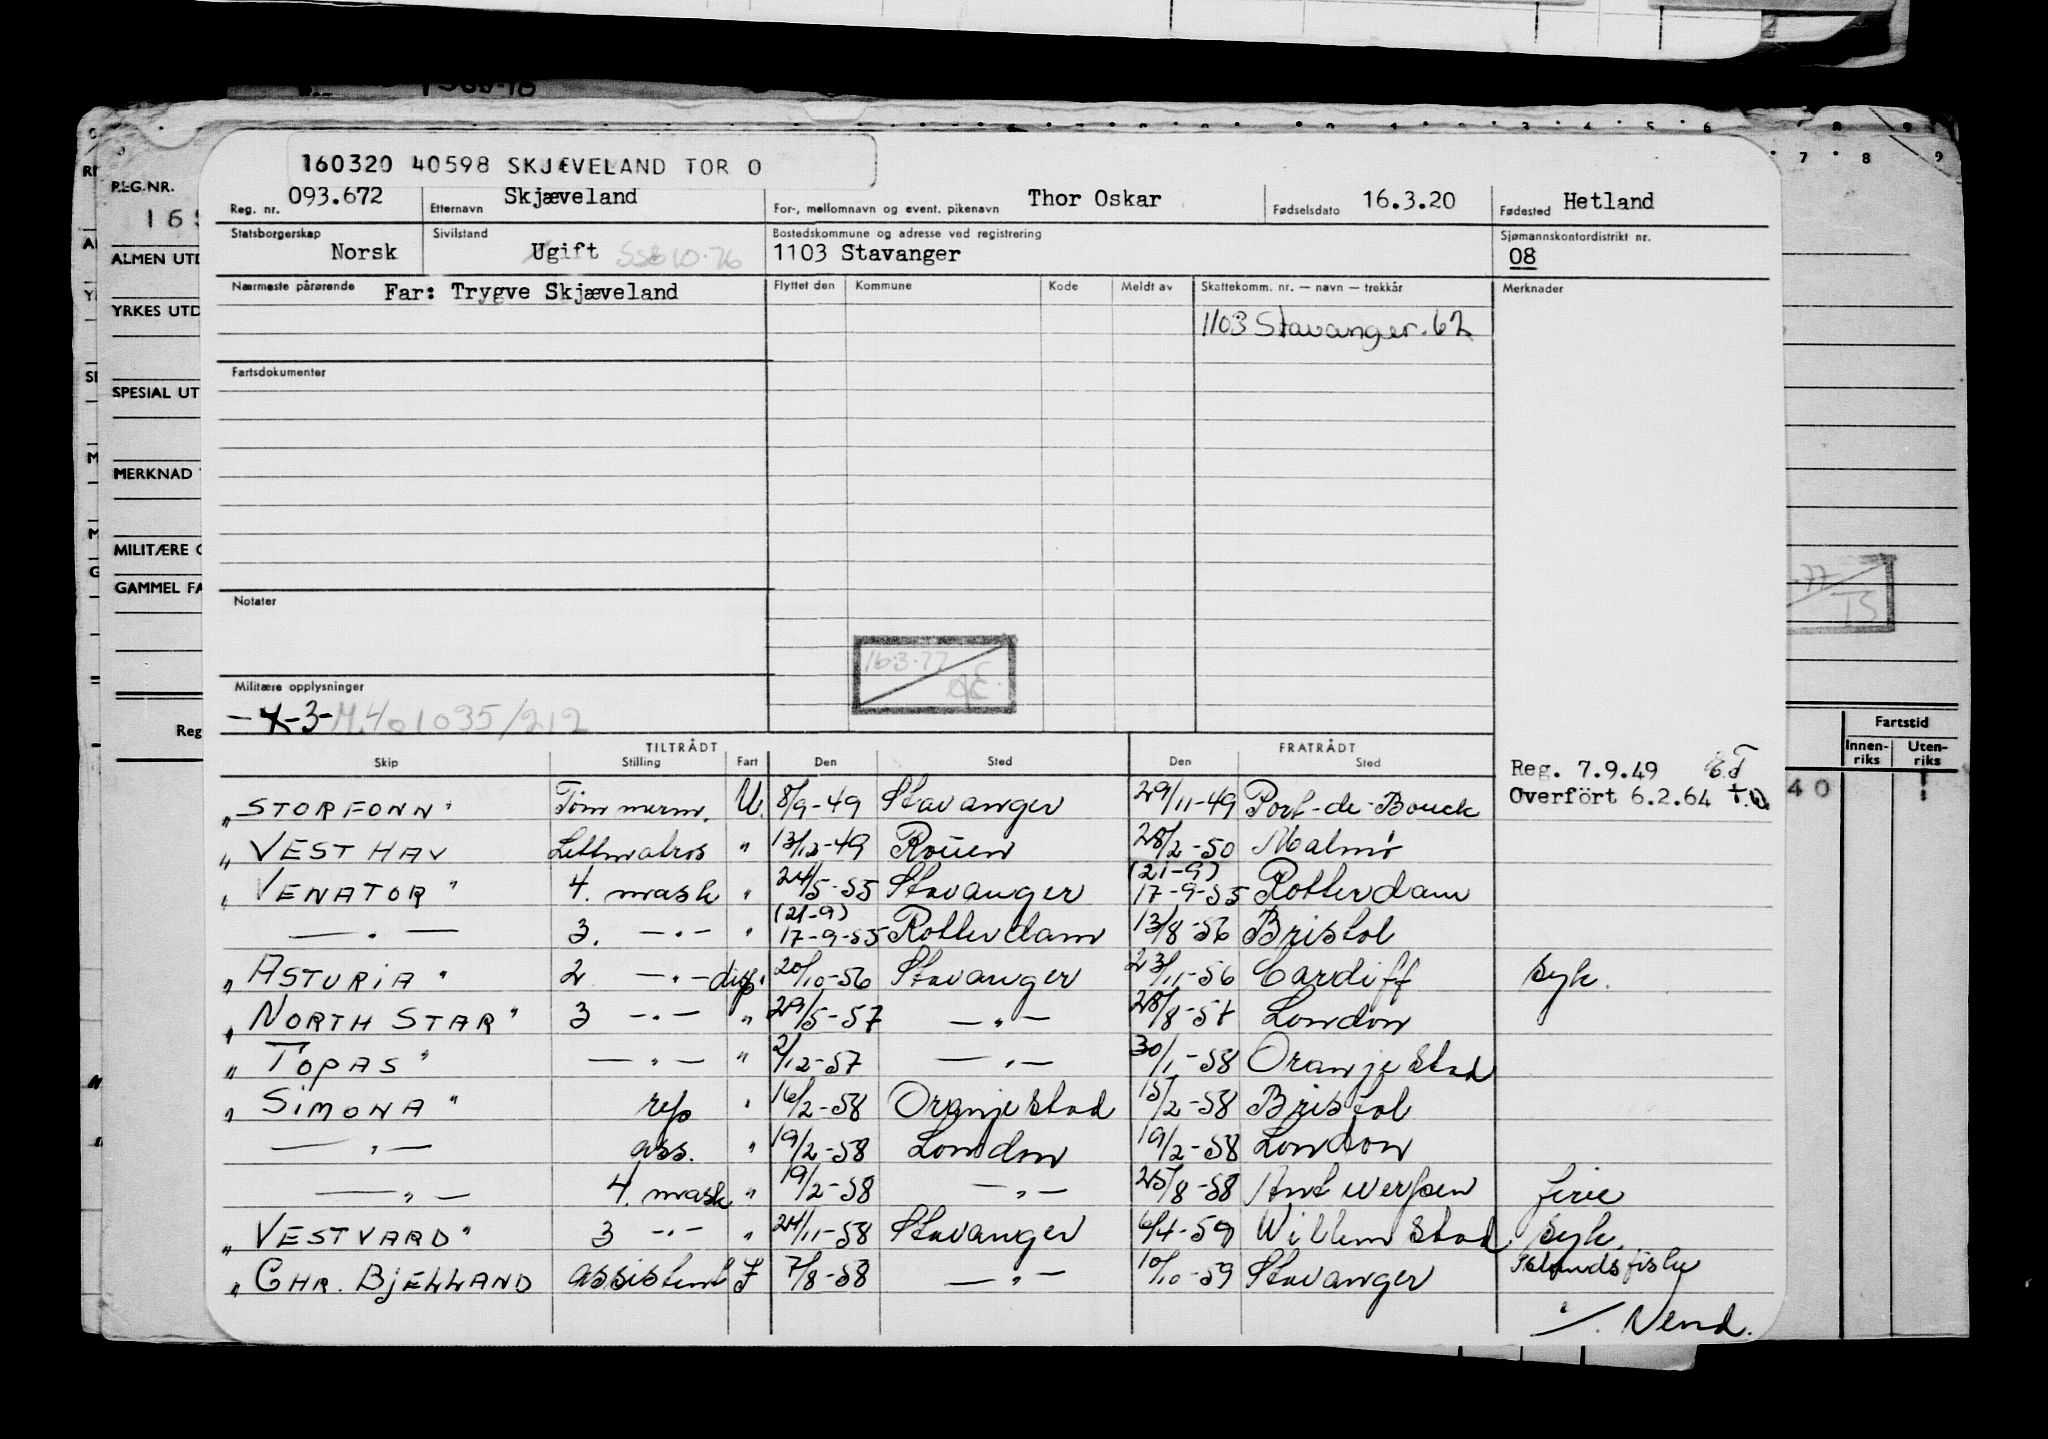 160320 40598 SKJÆVELAND TOR O
Reg. nr. 093.672 Etternavn Skjæveland For-, mellomnavn og event. pikenavn Thor Oskar Fødselsdato 16.3.20 Fødested Hetland
Statsborgerskap Norsk Sivilstand Ugift Bostedskommune og adresse ved registrering 1103 Stavanger Sjømannskontordistrikt nr. 08
Nærmeste pårørende Far: Trygve Skjæveland Flyttet den Kommune Kode Meldt av Skattekomm. nr. — navn — trekkår Merknader
1103 Stavanger. 62
Fartsdokumenter
Notater
16.3.77
Militære opplysninger
-3- M.401035/212
TILTRÅDT FRATRÅDT
Skip Stilling Fart Den Sted Den Sted
Reg. 7.9.49
Overfört 6.2.64
"STORFONN" Tømmerm. U. 8/9-49 Stavanger 29/11-49 Port-de-Bouck
"VEST HAV Lettmatros " 13/12-49 Rouen 28/2-50 Malmø
"VENATOR" 4. mask " 24/5-55 Stavanger (21-9) 17-9-55 Rotterdam
— " — 3. — " — " (21-9) 17-9-55 Rotterdam 13/8-56 Bristol
"ASTURIA" 2 — " — disp. " 20/10-56 Stavanger 23/11-56 Cardiff syk.
"NORTH STAR" 3 — " — " 29/5-57 — " — 28/8-57 London
"TOPAS" — " — " 2/12-57 — " — 30/1-58 Oranjestad
"SIMONA" rep " 16/2-58 Oranjestad 15/2-58 Bristol
— " — ass. " 19/2-58 London 19/2-58 London
— " — 4. mask " 19/2-58 — " — 25/8-58 Antwerpen ferie
"VESTVARD" 3 — " — " 24/11-58 Stavanger 6/4-59 Willemstad syk.
"CHR. BJELLAND assistent F 7/8-58 — " — 10/10-59 Stavanger Islandsfiske
./. Vend.
REG.NR.
ALMEN UTD
YRKES UTD
SPECIAL UT
MERKNAD
MILITÆRE O
GAMMEL FA
Reg
Fartstid
Innen-riks Uten-riks
40